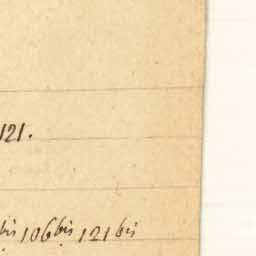 121.
bis 106 bis 121 bis